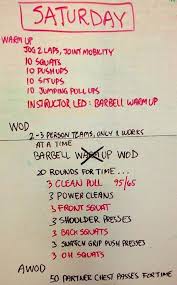 SATURDAY
WARM UP
JOG 2 LAPS, JOINT MOBILITY
10 SQUATS
10 PUSHUPS
10 SITUPS
10 JUMPING PULL UPS
INSTRUCTOR LED: BARBELL WARM UP
WOD
2-3 PERSON TEAMS, ONLY 1 WORKS
AT A TIME
BARBELL WARMUP WOD
20 ROUNDS FOR TIME...
3 CLEAN PULL 95/65
3 POWER CLEANS
3 FRONT SQUAT
3 SHOULDER PRESSES
3 BACK SQUATS
3 SNATCH GRIP PUSH PRESSES
3 OH SQUATS
AWOD
50 PARTNER CHEST PASSES FOR TIME